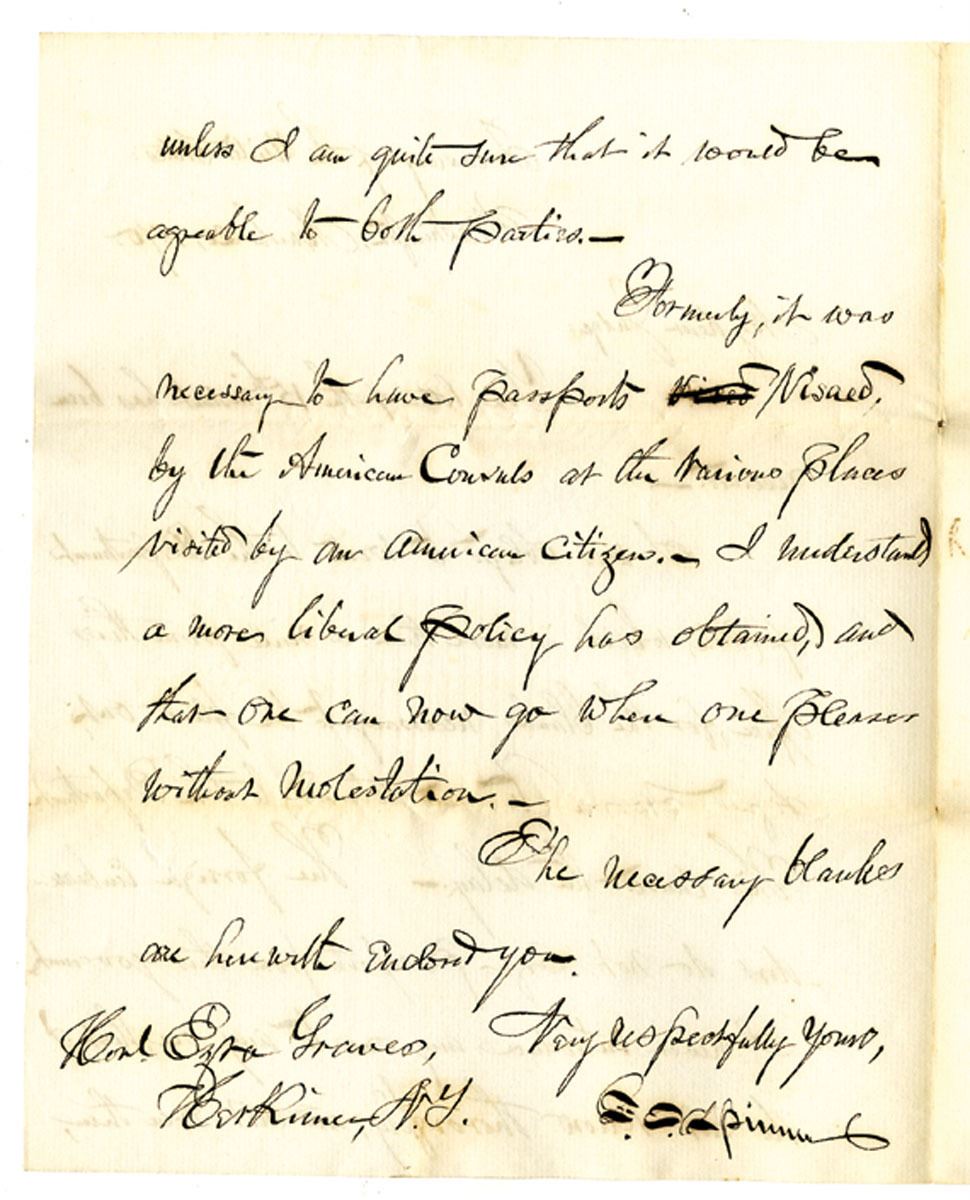 unless I am quite sure that it would be
agreable to both parties.—
Formerly, it was
necessary to have passports Visaed,
by the American Consuls at the various places
visited by an American citizen.— I understand
a more liberal policy has obtained, and
that one can now go when one pleases
without molestation.—
The necessary blankes
are herewith enclosed you.
Honl Ezra Graves, Very respectfully yours,
Herkimer, N.Y. F. E. Spinner